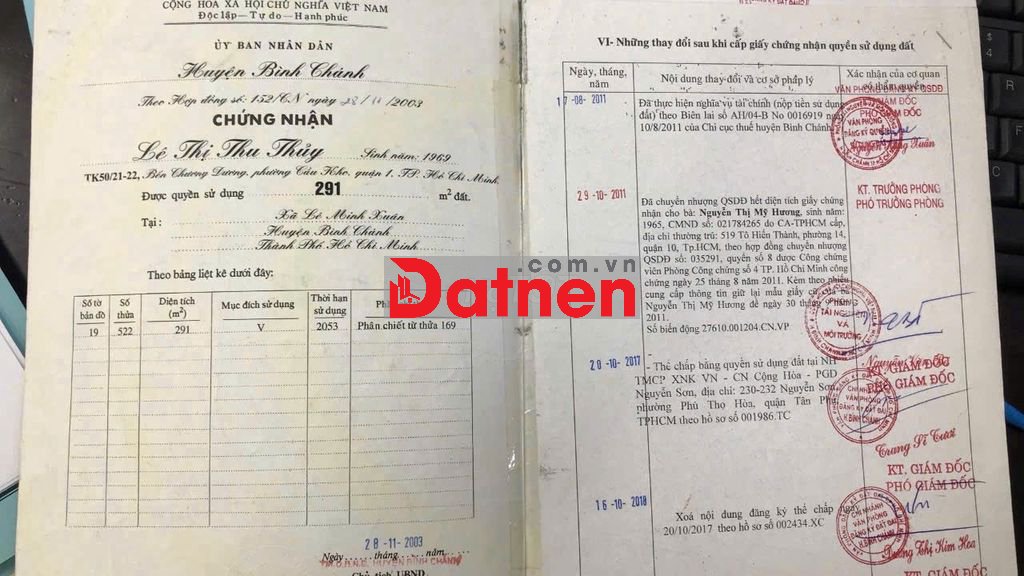 CỘNG HÒA XÃ HỘI CHỦ NGHĨA VIỆT NAM
Độc lập — Tự do — Hạnh phúc
ỦY BAN NHÂN DÂN
Huyện Bình Chánh
Theo Hợp đồng số: 152/CN ngày 28/11/2003
CHỨNG NHẬN
Lê Thị Thu Thủy Sinh năm: 1969
TK50/21-22, Bến Chương Dương, phường Cầu Kho, quận 1. TP. Hồ Chí Minh.
Được quyền sử dụng 291 m² đất.
Tại: Xã Lê Minh Xuân
Huyện Bình Chánh
Thành Phố Hồ Chí Minh
Theo bảng liệt kê dưới đây:
Số tờ bản đồ Số thửa Diện tích (m²) Mục đích sử dụng Thời hạn sử dụng
19 522 291 V 2053 Phân chiết từ thửa 169
28-11-2003
Ngày tháng năm
HUYỆN BÌNH CHÁNH
Chủ tịch UBND
VI- Những thay đổi sau khi cấp giấy chứng nhận quyền sử dụng đất
Ngày, tháng, năm
Nội dung thay đổi và cơ sở pháp lý
Xác nhận của cơ quan có thẩm quyền
17-08-2011
Đã thực hiện nghĩa vụ tài chính (nộp tiền sử dụng
đất) theo Biên lai số AH/04-B No 0016919 ngày
10/8/2011 của Chi cục thuế huyện Bình Chánh
VĂN PHÒNG ĐĂNG KÝ QSDĐ
GIÁM ĐỐC
PHÓ GIÁM ĐỐC
VĂN PHÒNG
ĐĂNG KÝ QUYỀN
29-10-2011
Đã chuyển nhượng QSDĐ hết diện tích giấy chứng
nhận cho bà: Nguyễn Thị Mỹ Hương, sinh năm:
1965, CMND số: 021784265 do CA-TPHCM cấp,
địa chỉ thường trú: 519 Tô Hiến Thành, phường 14,
quận 10, Tp.HCM, theo hợp đồng chuyển nhượng
QSDĐ số: 035291, quyển số 8 được Công chứng
viên Phòng Công chứng số 4 TP. Hồ Chí Minh công
chứng ngày 25 tháng 8 năm 2011. Kèm theo nhiều
cung cấp thông tin giữ lại mẫu giấy cũ của
Nguyễn Thị Mỹ Hương đề ngày 30 tháng
2011.
Số biến động 27610.001204.CN.VP
KT. TRƯỞNG PHÒNG
PHÓ TRƯỞNG PHÒNG
PHÒNG
TÀI NGUYÊN
VÀ
MÔI TRƯỜNG
20-10-2017
- Thế chấp bằng quyền sử dụng đất tại NH
TMCP XNK VN - CN Cộng Hòa - PGD
Nguyễn Sơn, địa chỉ: 230-232 Nguyễn Sơn,
phường Phú Thọ Hòa, quận Tân Phú,
TPHCM theo hồ sơ số 001986.TC
KT. GIÁM ĐỐC
PHÓ GIÁM ĐỐC
CHI NHÁNH
VĂN PHÒNG
ĐĂNG KÝ ĐẤT ĐAI
H.BÌNH CHÁNH
Trang Sĩ Tươi
16-10-2018
Xoá nội dung đăng ký thế chấp ngày
20/10/2017 theo hồ sơ số 002434.XC
KT. GIÁM ĐỐC
PHÓ GIÁM ĐỐC
CHI NHÁNH
VĂN PHÒNG
ĐĂNG KÝ ĐẤT ĐAI
H.BÌNH CHÁNH
Dương Thị Kim Hoa
KT. GIÁM ĐỐC
Datnen
.com.vn